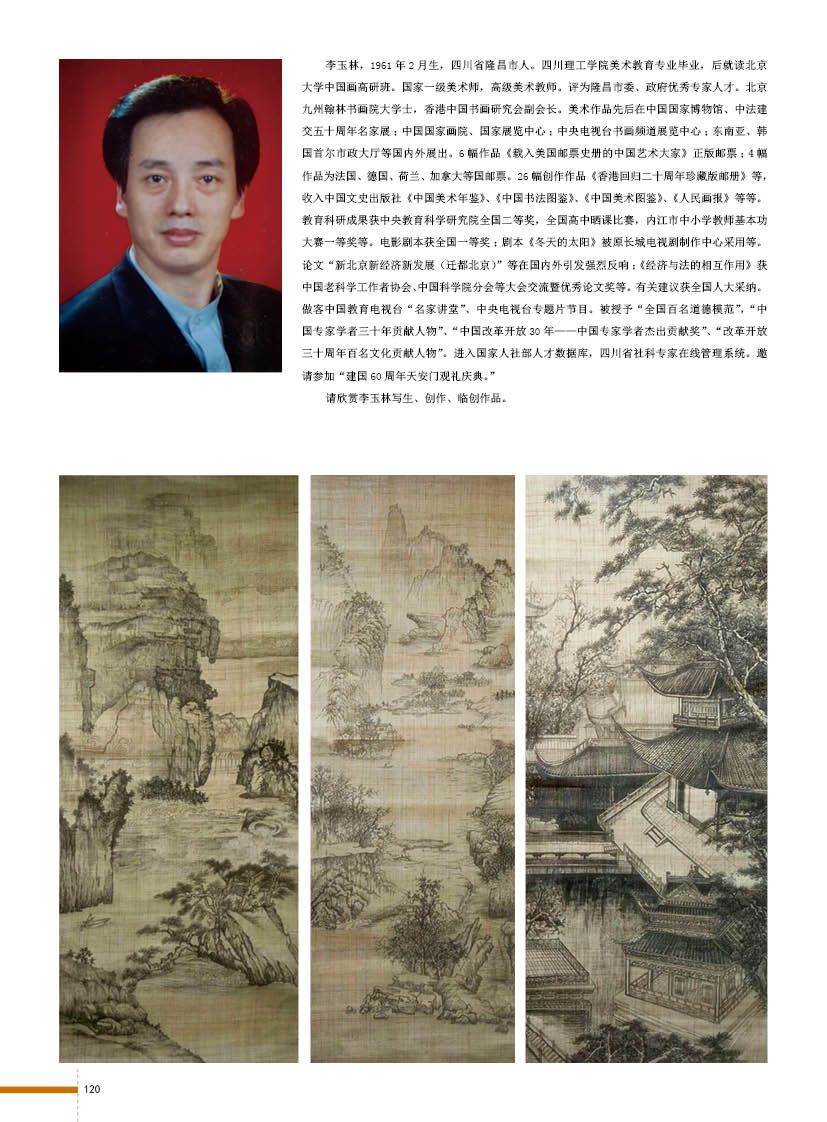 李玉林，1961 年 2 月生，四川省隆昌市人。四川理工学院美术教育专业毕业，后就读北京
大学中国画高研班。国家一级美术师，高级美术教师。评为隆昌市委、政府优秀专家人才。北京
九州翰林书画院大学士，香港中国书画研究会副会长。美术作品先后在中国国家博物馆、中法建
交五十周年名家展；中国国家画院、国家展览中心；中央电视台书画频道展览中心；东南亚、韩
国首尔市政大厅等国内外展出。6 幅作品《载入美国邮票史册的中国艺术大家》正版邮票；4 幅
作品为法国、德国、荷兰、加拿大等国邮票。26 幅创作作品《香港回归二十周年珍藏版邮册》等，
收入中国文史出版社《中国美术年鉴》、《中国书法图鉴》、《中国美术图鉴》、《人民画报》等等。
教育科研成果获中央教育科学研究院全国二等奖，全国高中晒课比赛，内江市中小学教师基本功
大赛一等奖等。电影剧本获全国一等奖；剧本《冬天的太阳》被原长城电视剧制作中心采用等。
论文“新北京新经济新发展（迁都北京）”等在国内外引发强烈反响；《经济与法的相互作用》获
中国老科学工作者协会、中国科学院分会等大会交流暨优秀论文奖等。有关建议获全国人大采纳。
做客中国教育电视台“名家讲堂”、中央电视台专题片节目。被授予“全国百名道德模范”，“中
国专家学者三十年贡献人物”、“中国改革开放 30 年——中国专家学者杰出贡献奖”、“改革开放
三十周年百名文化贡献人物”。进入国家人社部人才数据库，四川省社科专家在线管理系统。邀
请参加“建国 60 周年天安门观礼庆典。”
请欣赏李玉林写生、创作、临创作品。
120